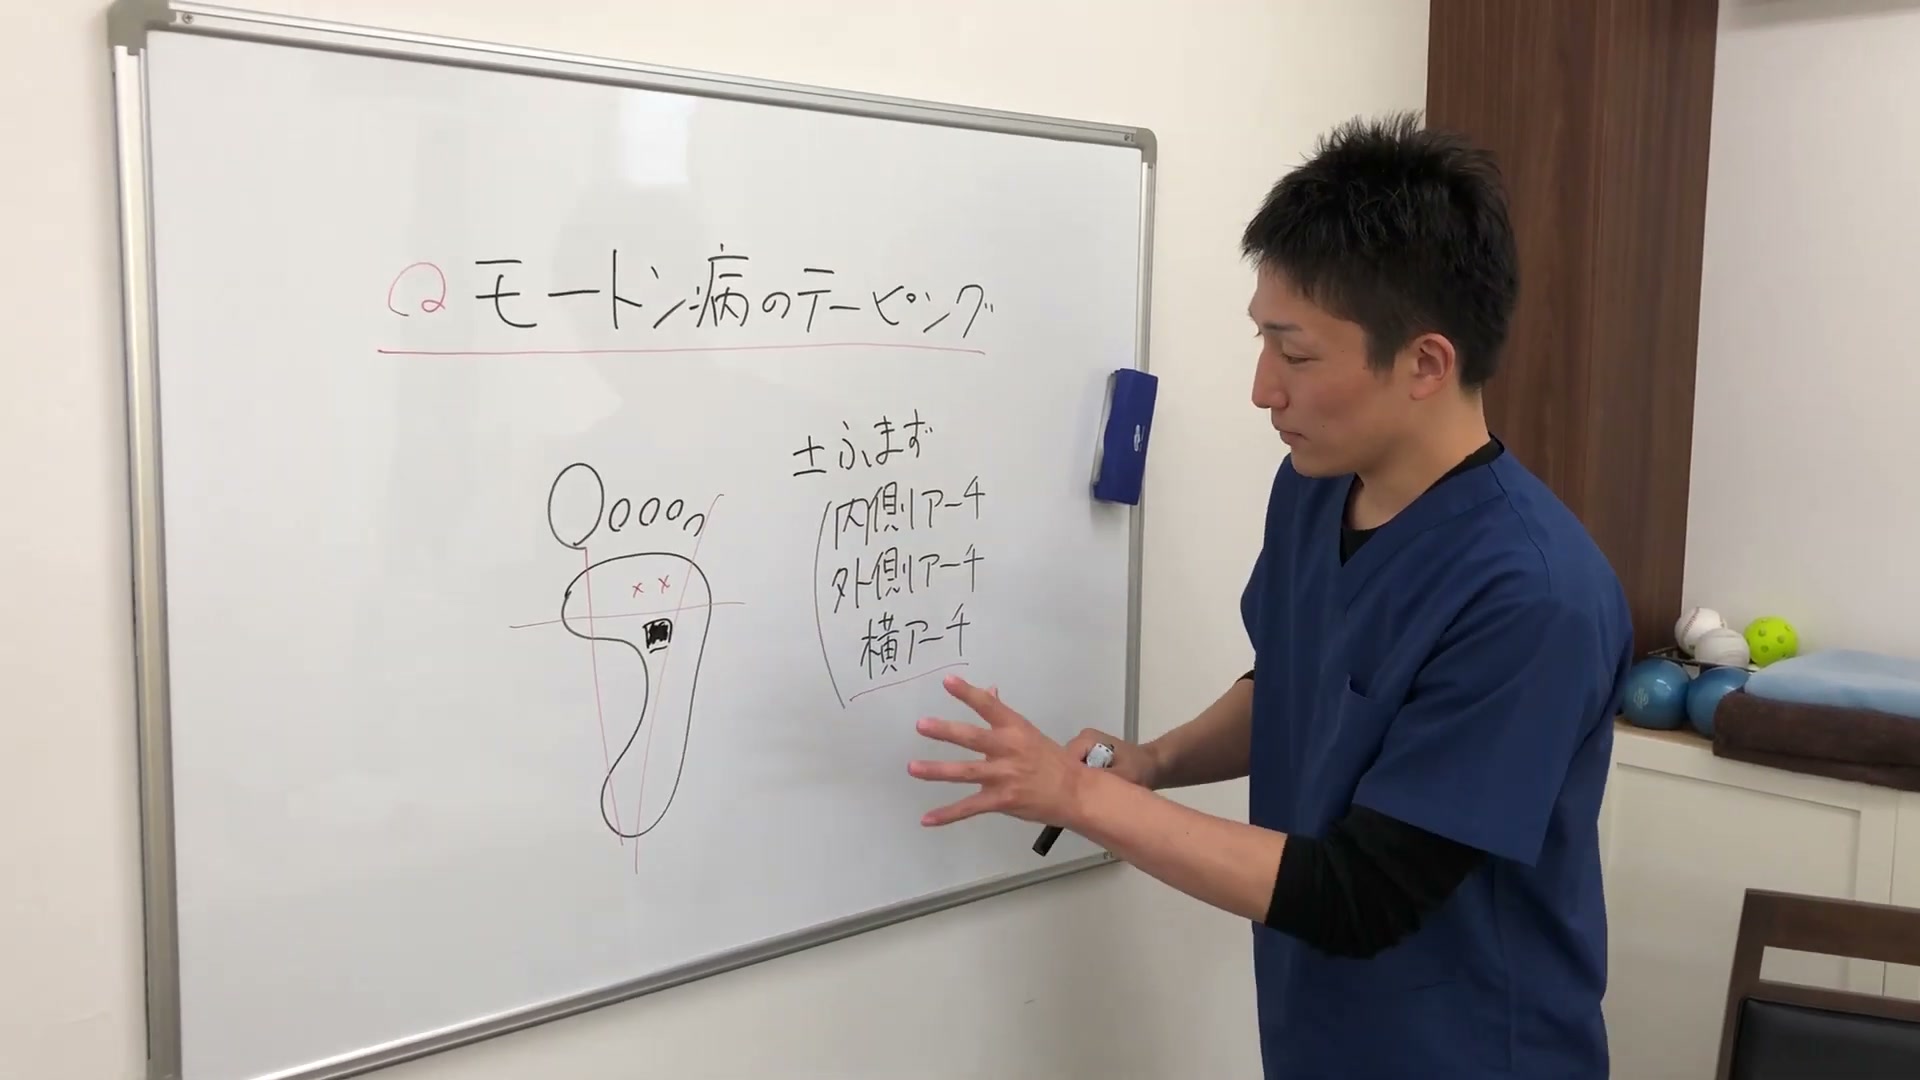 Q モートン病のテーピング
土ふまず
内側アーチ
外側アーチ
横アーチ